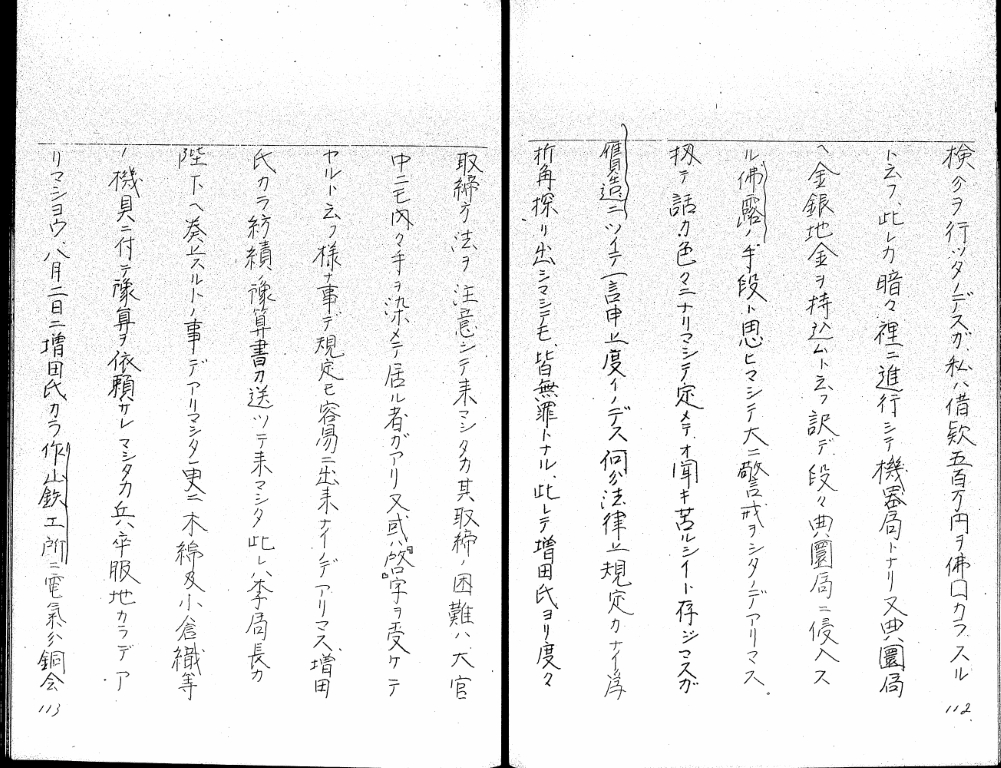 検分ヲ行ッタノデスガ私ハ借欵五百万円ヲ佛口カラスル
ト云フ、此レカ暗々裡ニ進行シテ機器局トナリ又典圜局
ヘ金銀地金ヲ持込ムト云フ訳デ段々典圜局ニ侵入ス
ル佛露ノ手段ト思ヒマシテ大ニ警戒ヲシタノデアリマス
扨テ話カ色々ニナリマシテ定メテオ聞キ苦ルシイト存ジマスガ
贋造ニツイテ一言申上度イノデス何分法律上規定カナイ為
折角探リ出シマシテモ、皆無罪トナル、此レテ増田氏ヨリ度々
112
取締方法ヲ注意シテ来マシタカ其取締ノ困難ハ大官
中ニモ内々手ヲ染メテ居ル者ガアリ又或ハ啓字ヲ受ケテ
ヤルト云フ様ナ事デ規定モ容易ニ出来ナイノデアリマス、増田
氏カラ紡績ノ豫算書カ送ッテ来マシタ此レハ李局長カ
陛下ヘ奏上スルトノ事デアリマシタ更ニ木綿及小倉織等
ノ機具ニ付テ豫算ヲ依頼サレマシタカ兵卒服地カラデア
リマショウ、八月二日ニ増田氏カラ作山鉄工所ニ電氣分銅会
113